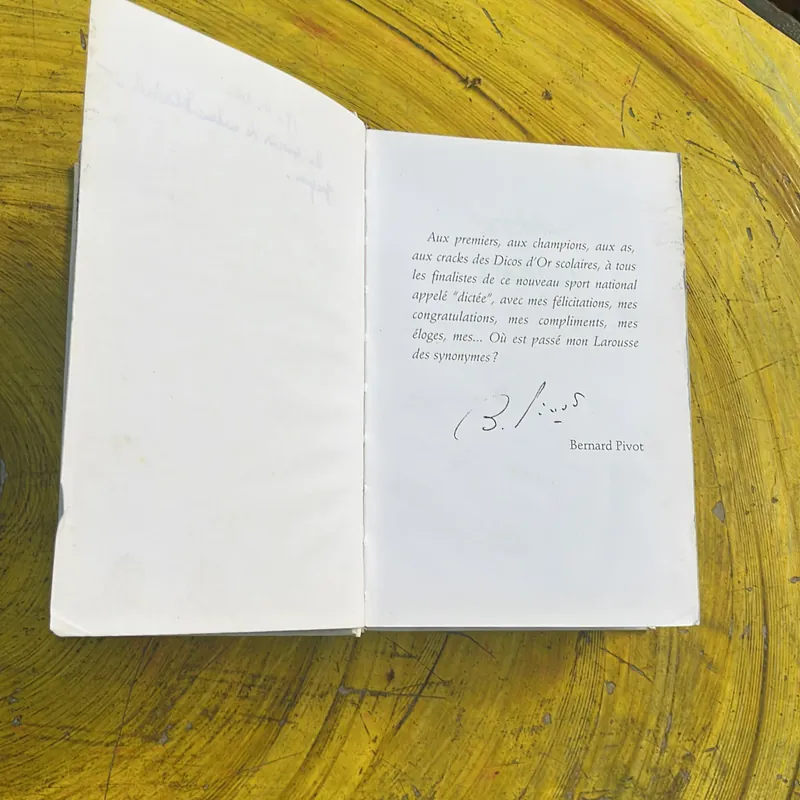 Aux premiers, aux champions, aux as,
aux cracks des Dicos d'Or scolaires, à tous
les finalistes de ce nouveau sport national
appelé "dictée", avec mes félicitations, mes
congratulations, mes compliments, mes
éloges, mes... Où est passé mon Larousse
des synonymes ?
B. Pivot
Bernard Pivot